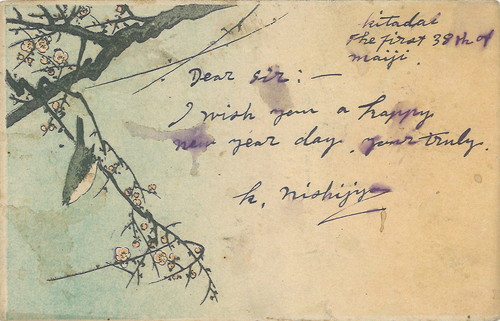 Kitadai
The first 38th of
maiji.
Dear Sir:—
I wish you a happy
new year day, your truly.
K. Nishijy